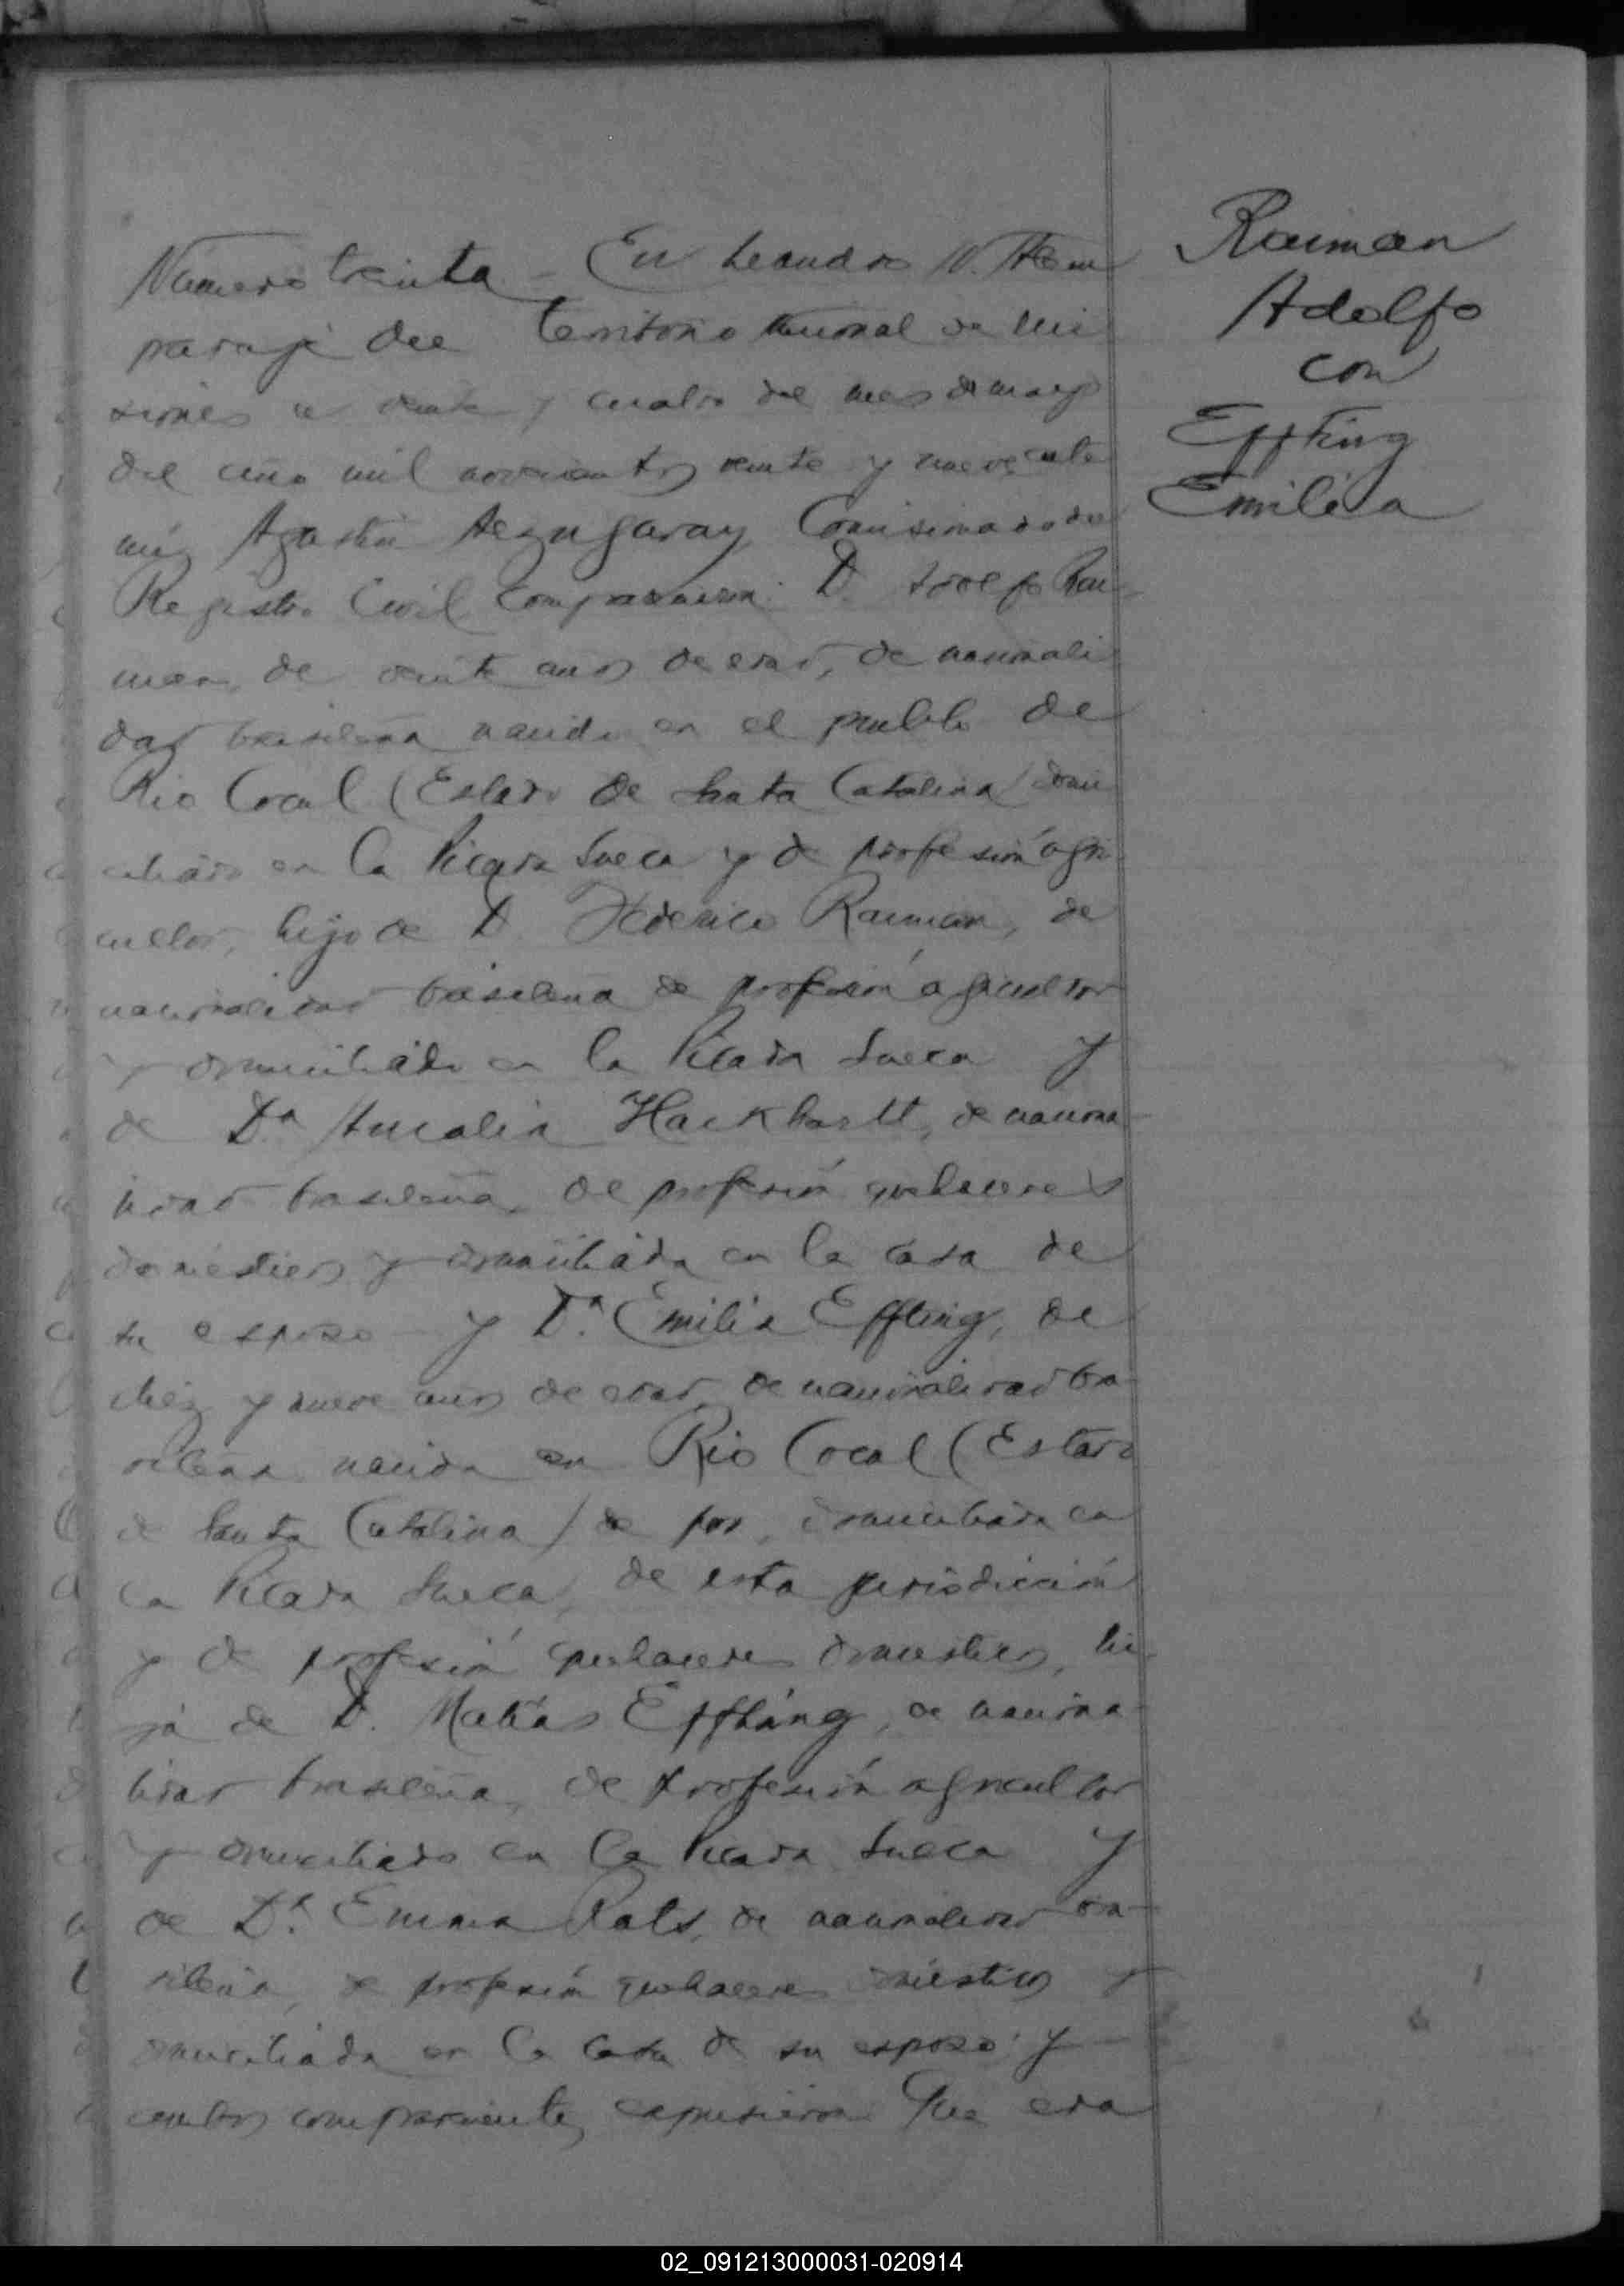 Raiman
Adolfo
con
Effting
Emilia
Numero treinta - En Leandro N. Alem
paraje del Territorio Nacional de Mi
siones a veinte y cuatro del mes de mayo
del año mil novecientos veinte y nueve, ante
mí, Agustin Aezugaray, Comisionado del
Registro Civil comparecieron: D. Adolfo Rai-
man, de veinte años de edad, de nacionali
dad brasileña nacido en el pueblo de
Rio Cocal (Estado de Santa Catalina) domi
ciliado en la Picada Sueca y de profesión agri
cultor, hijo de D. Federico Raiman, de
nacionalidad brasileña de profesión agricultor
y domiciliado en la Picada Sueca y
de Dª Amalia Hackbartt, de naciona-
lidad brasileña, de profesión quehaceres
domésticos y domiciliada en la casa de
su esposo - y Dª Emilia Effting, de
diez y nueve años de edad, de nacionalidad bra-
sileña nacida en Rio Cocal (Estado
de Santa Catalina) domiciliada en
la Picada Sueca, de esta jurisdicción
y de profesión quehaceres domesticos, hi-
ja de D. Matías Effting, de naciona-
lidad brasileña, de profesión agricultor
y domiciliado en la Picada Sueca y
de Dª Emma Rats, de nacionalidad bra-
sileña, de profesión quehaceres domésticos y
domiciliada en la casa de su esposo: y
ambos comparecientes expusieron: Que era
02_091213000031-020914